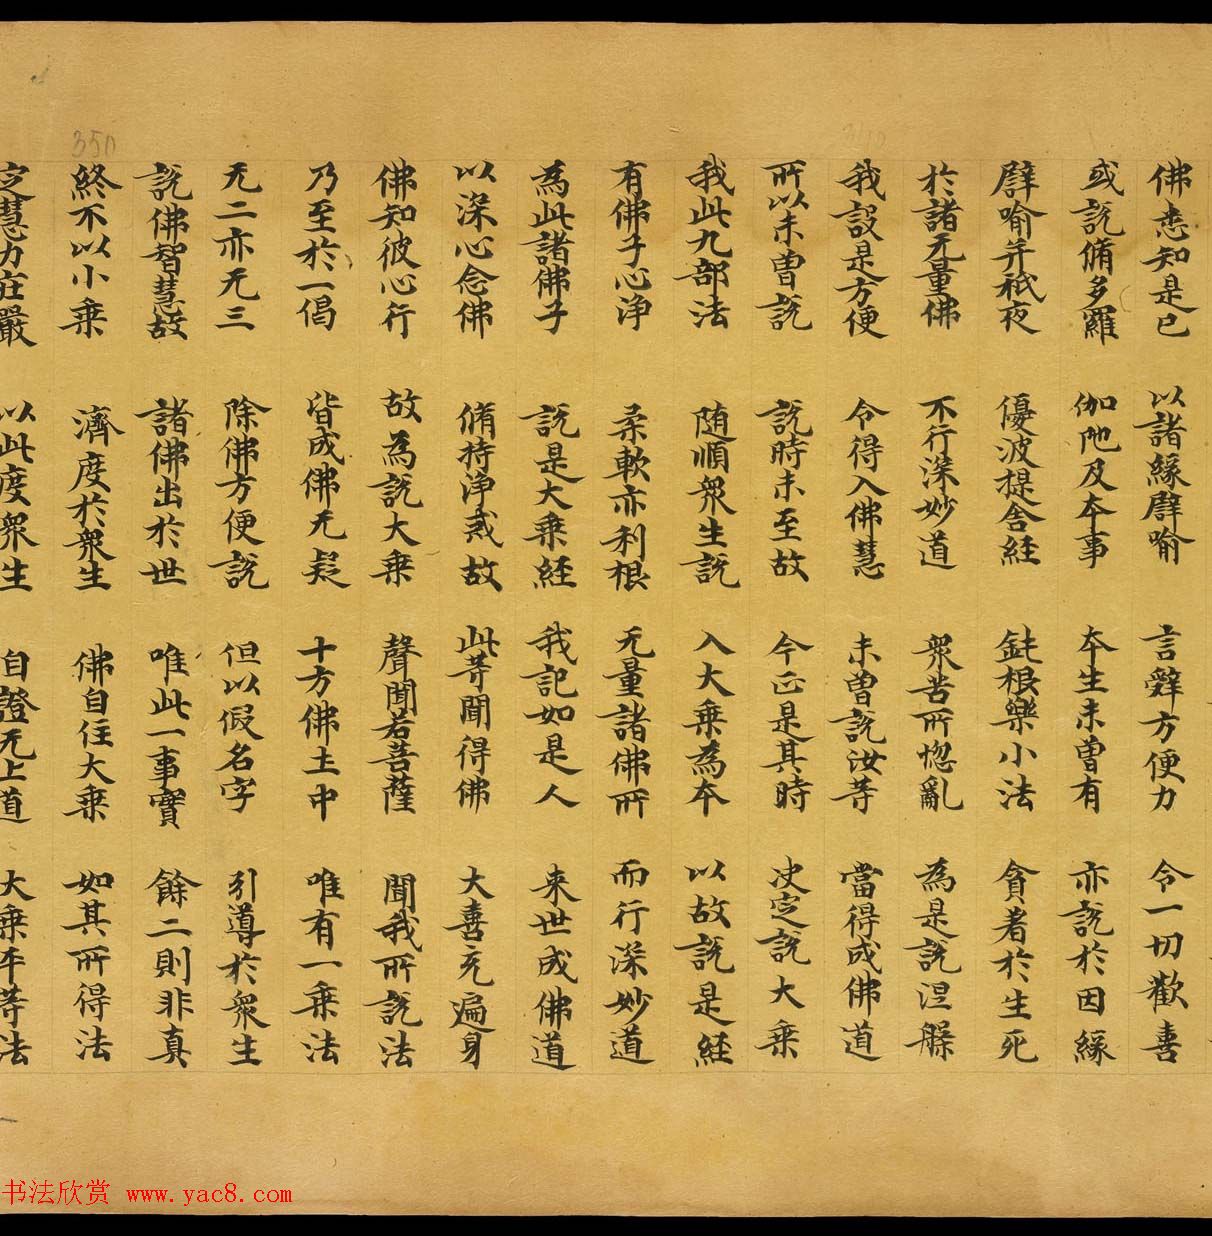 佛悉知是已 以諸緣譬喻 言辭方便力 令一切歡喜
或說脩多羅 伽陁及本事 本生未曾有 亦說於因緣
譬喻并祇夜 優波提舍經 鈍根樂小法 貪著於生死
於諸无量佛 不行深妙道 眾苦所惱亂 為是說涅槃
我設是方便 令得入佛慧 未曾說汝等 當得成佛道
所以未曾說 說時未至故 今正是其時 決定說大乘
我此九部法 随順眾生說 入大乘為本 以故說是經
有佛子心淨 柔軟亦利根 无量諸佛所 而行深妙道
為此諸佛子 說是大乘經 我記如是人 来世成佛道
以深心念佛 脩持淨戒故 此等聞得佛 大喜充遍身
佛知彼心行 故為說大乘 聲聞若菩薩 聞我所說法
乃至於一偈 皆成佛无疑 十方佛土中 唯有一乘法
无二亦无三 除佛方便說 但以假名字 引導於眾生
說佛智慧故 諸佛出於世 唯此一事實 餘二則非真
終不以小乘 濟度於眾生 佛自住大乘 如其所得法
定慧力莊嚴 以此度眾生 自證无上道 大乘平等法
350
书法欣赏 www.yac8.com